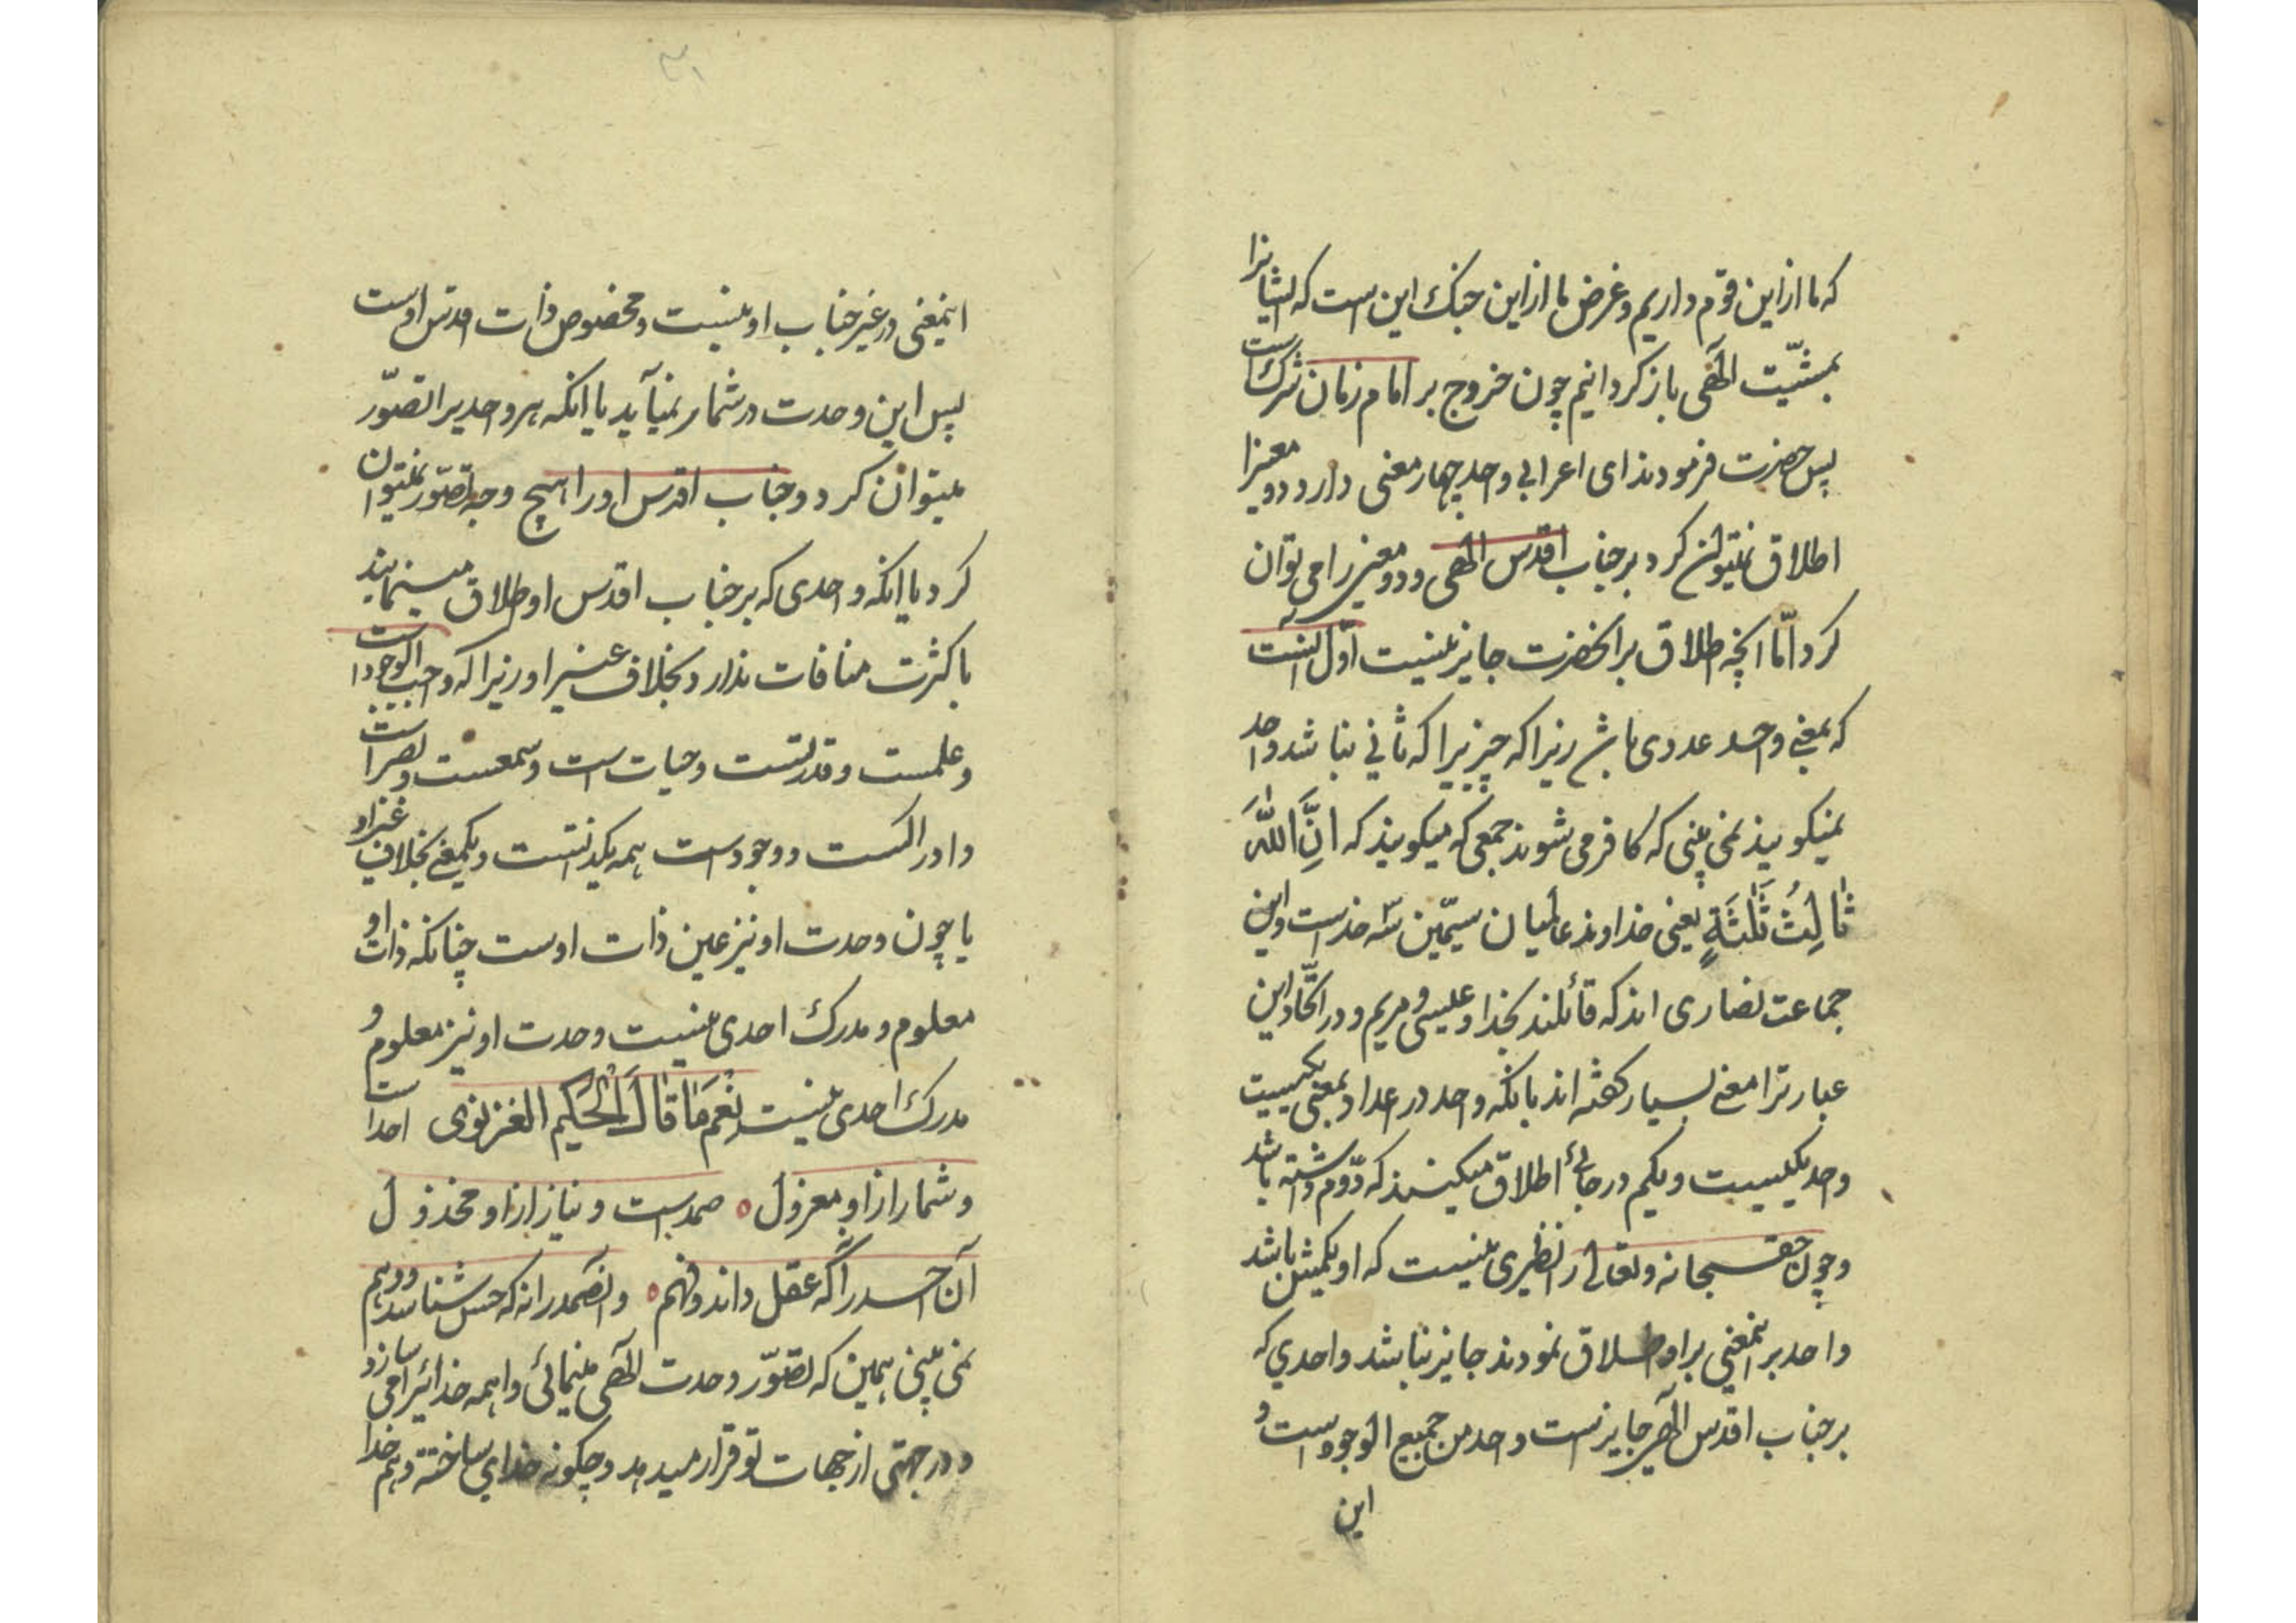 که ما ازاین قوم داریم وغرض ما ازاین جنک این است که ایشانرا
بمشیّت الهی باز کردانیم چون خروج بر امام زمان شرک است
پس حضرت فرمودند ای اعرابی واحد چهار معنی دارد دو معنیرا
اطلاق نمیتوان کرد بر جناب اقدس الهی ودو معنی را می توان
کرد امّا آنچه اطلاق بر انحضرت جایز نیست اوّل آنست
که بمعنی واحد عددی باشد زیرا که چیزیرا که ثانی نباشد واحد
نمیکویند نمی بینی که کافر می شوند جمعی که میکویند که اِنَّ اللّٰهَ
ثَالِثُ ثَلٰثَةٍ یعنی خداوند عالمیان سیمّین سه خداست واین
جماعت نصاری اند که قائلند بخدا وعیسی و مریم ودر اتّحاد این
عبارترا معنی بسیار کفته اند بانکه واحد در اعداد بمعنی یکیست
واحد یکیست ویکم در جائی اطلاق میکنند که دوّم داشته باشد
وچون حقسبحانه وتعالی را نظیری نیست که او یکمیش باشد
واحد بر اینمعنی بر او اطلاق نمودند جایز نباشد واحدی که
بر جناب اقدس الهی جایز است واحد من جمیع الوجوه است و
این
۳۱
اینمعنی در غیر جناب او نیست ومخصوص ذات اقدس اوست
پس این وحدت در شمار نمیآید یا انکه هر واحدیرا تصوّر
میتوان کرد وجناب اقدس اورا هیچ وجه تصوّر نمیتوان
کرد یا انکه واحدی که بر جناب اقدس او اطلاق مینمایند
با کثرت منافات ندارد بخلاف غیر او زیرا که واجب الوجود است
وعلمست وقدرتست وحیات است وسمعست وبصر است
وادراکست ووجود است همه یکذاتست ویکمعنی بخلاف غیر او
یا چون وحدت او نیز عین ذات اوست چنانکه ذات او
معلوم ومدرک احدی نیست وحدت او نیز معلوم و
مدرک احدی نیست نِعْمَ مَا قَالَ الْحَکیم الغزنوی احد است
وشمار ازاو معزول صمد است ونیاز ازاو مخذول
آن احد را که عقل داند وفهم وانصمد را نه که حس شناسد و وهم
نمی بینی همین که تصوّر وحدت الهی مینمائی واهمه خدائیرا می سازد
ودر جهتی از جهات تو قرار میدهد وچکونه خدای ساخته وهم خدا